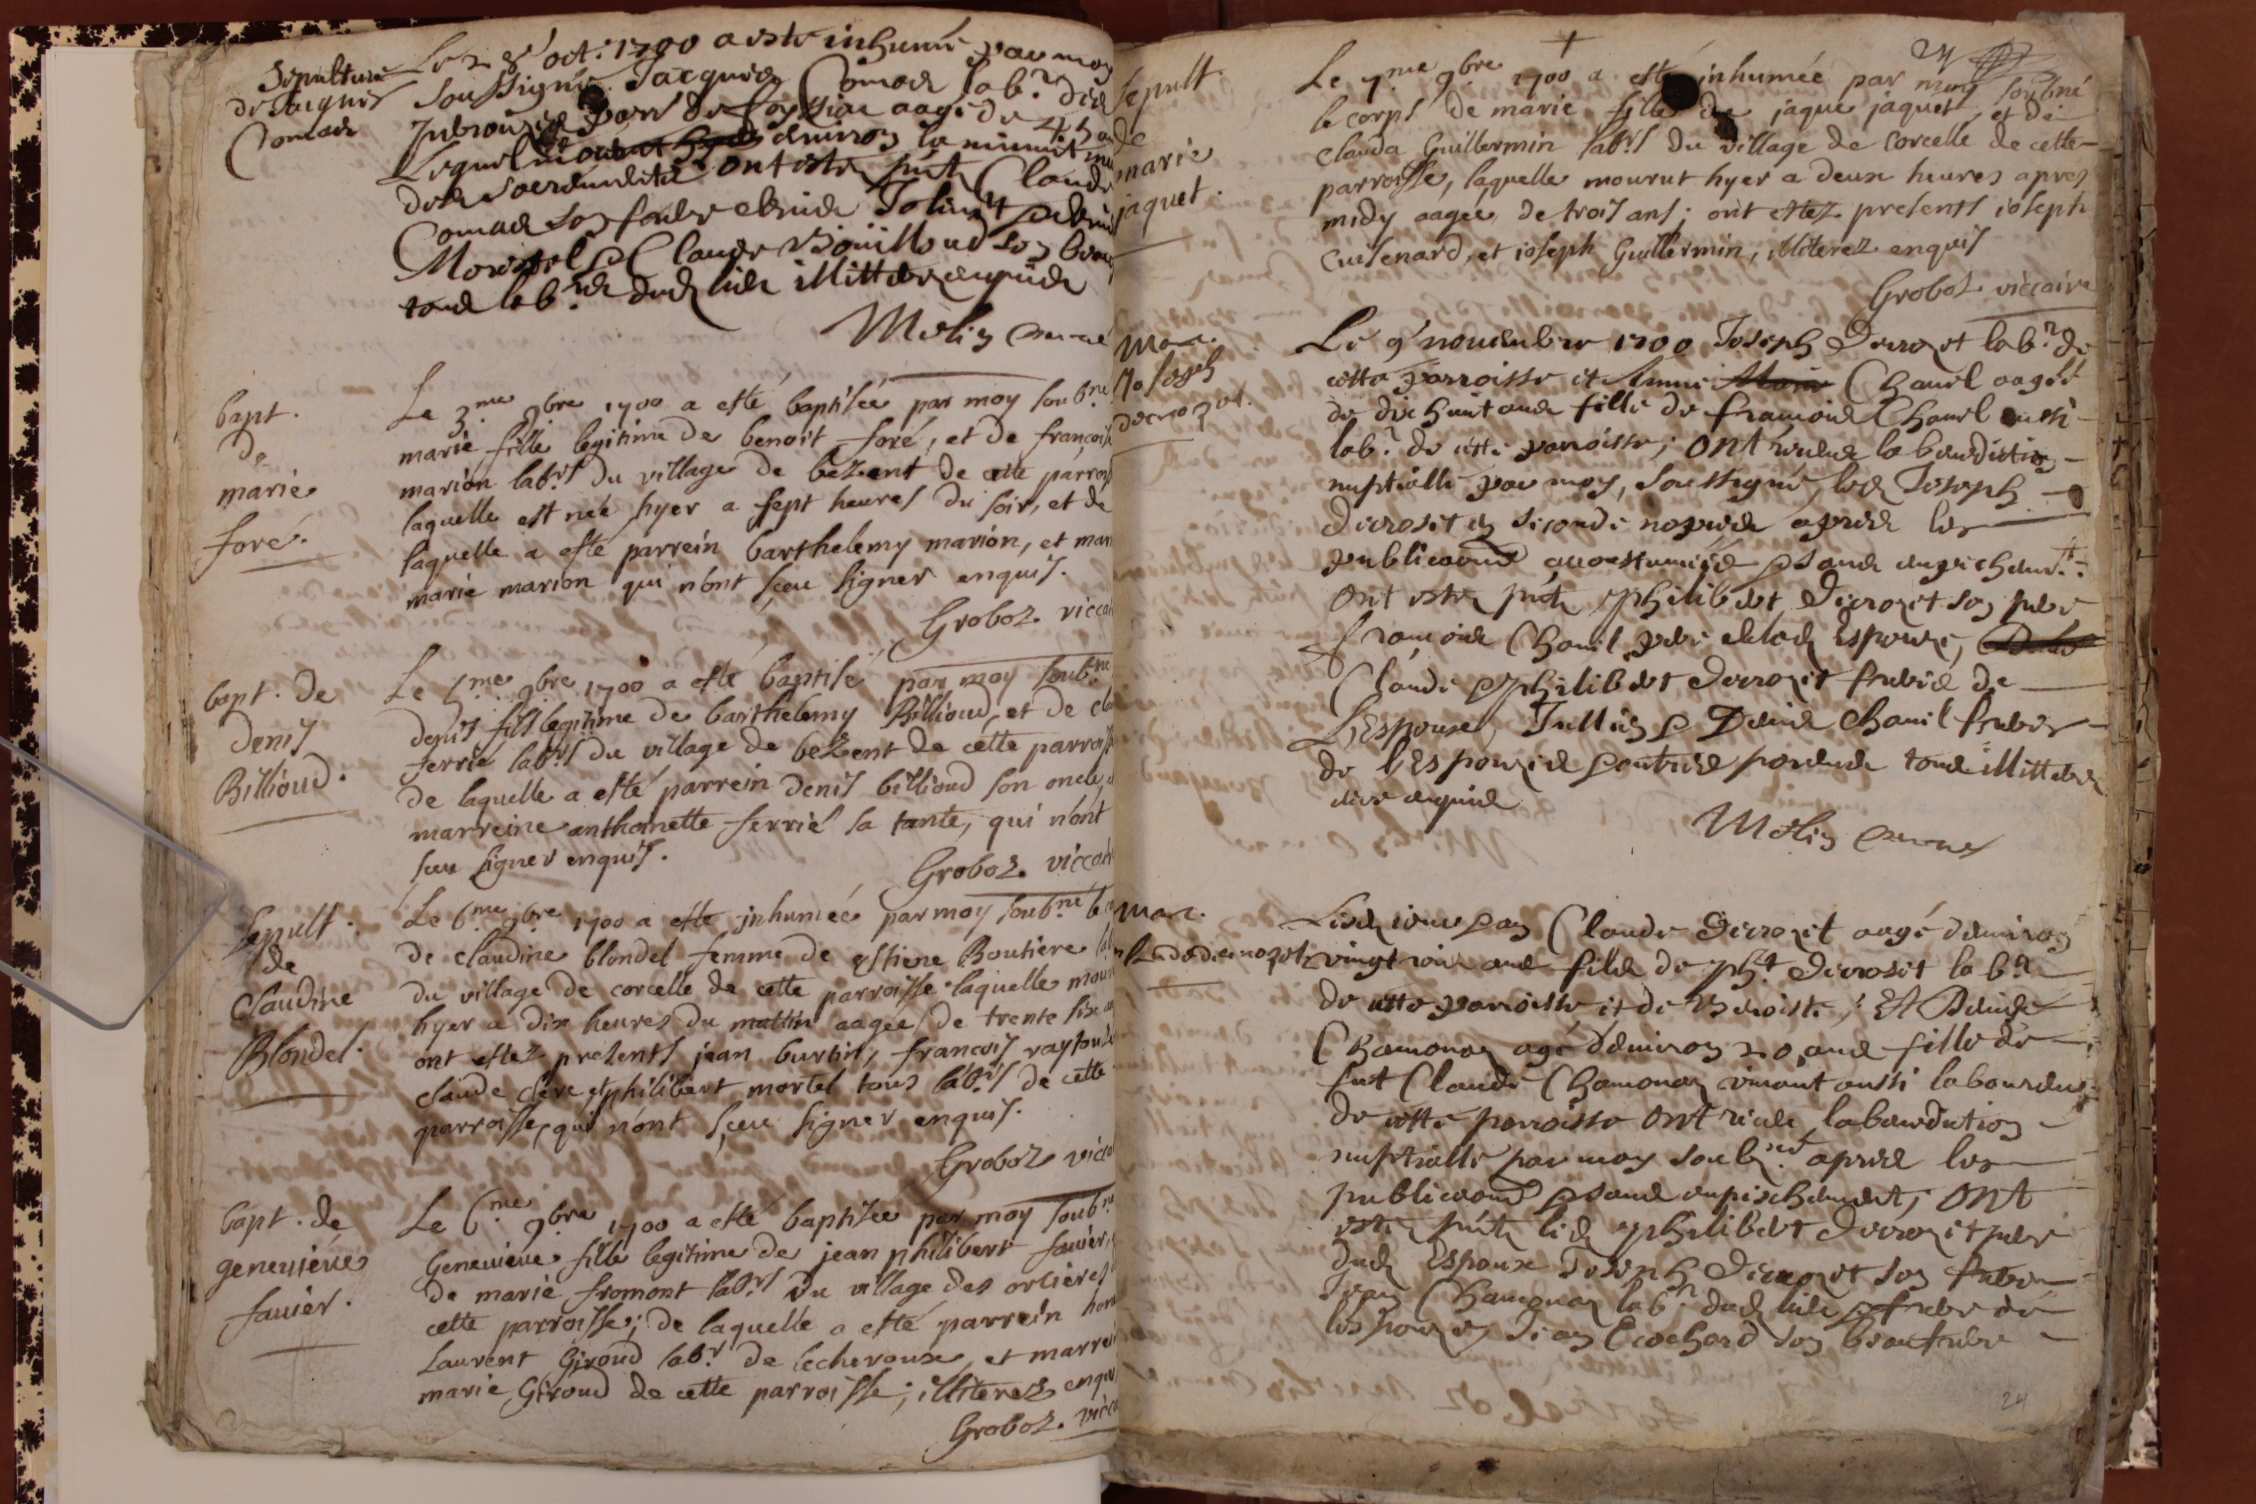 Sepulture
de Jacques
Comade
Le 28e oct. 1700 a esté inhumé par moy
soussigné Jacques Comade lab.r
aagé de 45
Lequel environ la minuit
ont esté pnts Claude
Comade son
Claude Boüilloud son beau
tous lab.rs dud. lieu illitterés enquis
Molin curé
bapt.
de
marie
foré.
Le 3.me 9bre 1700 a esté baptisée par moy soub.né
marie fille legitime de benoit foré, et de françoise
marion lab.rs du village de bezent de cette parroisse
laquelle est née hyer a sept heures du soir, et de
laquelle a esté parrein barthelemy marion, et mar
marie marion qui n'ont sçeu signer enquis.
Groboz viccai
bapt. de
Denis
Billioud.
Le 5.me 9bre 1700 a esté baptisé par moy soub.né
denis fils legitime de barthelemy Billioud, et de cla
ferrié lab.rs du village de bezent de cette parroisse
de laquelle a esté parrein denis billioud son oncle, et
marreine anthoinette ferrié sa tante, qui n'ont
sceu signer enquis.
Groboz. viccai
sepult.
de
Claudine
Blondel.
Le 6.me 9bre 1700 a esté inhumée par moy soub.né le co
de claudine blondel femme de estiene Boutiere lab
du village de corcelle de cette parroisse laquelle mour
hyer a dix heures du mattin aagée de trente six an
ont estez presents jean burtin, francois raytoud
claude clere et philibert mortel tous lab.rs de cette
parroisse, qui n'ont sçeu signer enquis.
Groboz vicca
bapt. de
genevieve
favier.
Le 6.me 9bre 1700 a esté baptisée par moy soub.né
Genevieve fille legitime de jean philibert favier,
de marie fromont lab.rs du village des orcieres
cette parroisse; de laquelle a esté parrein hon
Laurent Giroud lab.r de lecheroux, et marrei
marie Giroud de cette parroisse; illiterez enqui
Groboz. vicca
24
Sepult.
de
marie
jaquet.
Le 7.me 9bre 1700 a esté inhumée par moy soub.né
le corps de marie fille de jaque jaquet, et de
Clauda Guillermin lab.rs du village de corcelle de cette
parroisse, laquelle mourut hyer a deux heures apres
midy aagée de trois ans; ont estez presents ioseph
Cuisenard, et ioseph Guillermin, illiterez enquis
Groboz viccaire
Mar.
Joseph
decrozet.
Le 9e novembre 1700 Joseph Decrozet lab.r de
cette parroisse et Anne Marie Chanel aagée
de dix huit ans fille de francois Chanel aussi
lab.r de cette parroisse; ont receu la benediction
nuptialle par moy, soussigné, led. Joseph
Decroset en seconde nopces apres les
publicaons accoustumées & sans empeschem.t
ont esté pnts philibert Decrozet son pere
francois Chanel pere de lad. Espouse,
Claude & philibert Decrozet freres de
L'Espoux, Jullien & Denis Chanel freres
de l'Espouse & autres parents tous illitterés
enquis
Molin curé
Mar.
Clade decrozet
Lesd. jour & an Claude Decrozet aagé d'environ
vingt trois ans fils de ph.t Decroset lab.r
de cette parroisse et de Benoiste; Et Denise
Chamonar agé d'environ 20 ans fille de
fut Claude Chamonar vivant aussi laboureur
de cette parroisse ont receu la benediction
nuptialle par moy soub.né apres les
publicaons & sans empeschement; ont
esté pnts led. philibert Decrozet pere
dud. Espoux Joseph Decrozet son frere
Jean Chamonar lab.r dud. lieu frere de
l'espouse, Jean Cochard son beaufrere
24